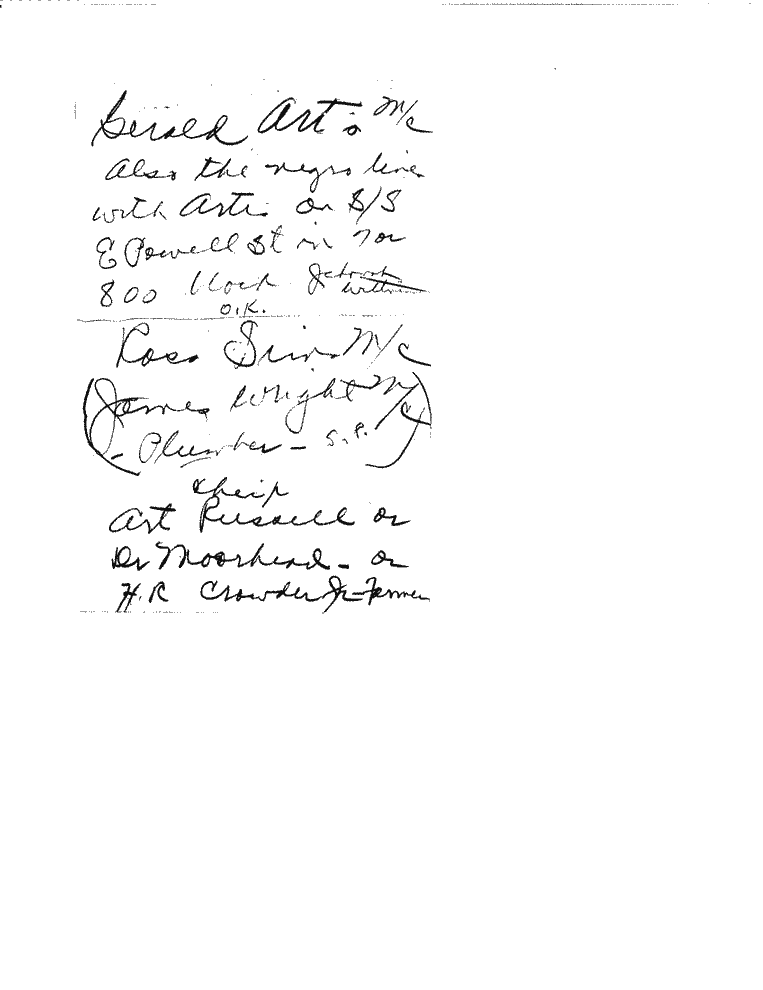 Gerald Artis M/C
Also the negro lives
with Artis on S/S
E Powell St in 7 or
800 block
O.K.
Ross Sims M/C
(James Wright M/C)
- Plumber - S.P.
their
Art Russell or
Dr Moorhead - or
H.R Crowder Jr - Farmer